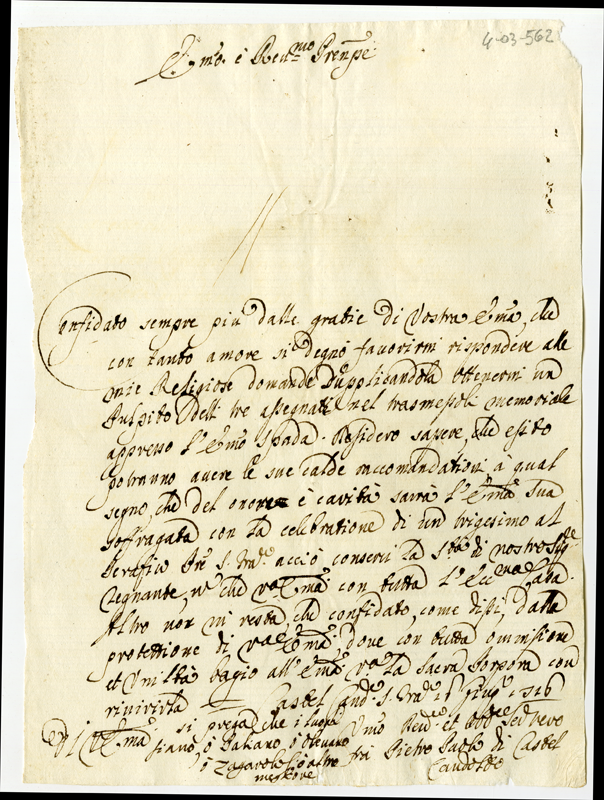 4-03-562
E.mo e Rev.mo Prenpe
Confidato sempre più dalle gratie di Vostra Em.a, che
con tanto amore si degnò favorirmi rispondere alle
mie Religiose domande supplicandola ottenermi un
delli tre assegnati nel trasmessoli memoriale
appresso l'Em.o Spada. Desidero sapere, che esito
potranno avere le sue calde raccomandationi à qual
segno, che del onore e carità sarrà l'Em.a Sua
soffragata con la celebratione di un trigesimo al
Serafico P.re S. acciò conservi la di nostro Sig.re
Regnante, che V.a Em.a con tutta l' Casa.
Altro non mi resta, che confidato, come dissi, dalla
protettione di V.a Em.a, dove con tutta ommissione
et Umiltà bagio all'Em.a V.a la Sacra Porpora con
riverirla Castel
Di V. Em.a
si prega che i luoghi Umo Dev.o et Obb.o Servo
siano, ò Paliano, ò Olevano frà Pietro Paolo di Castel
ò Zagarolo, ò altro Gandolfo